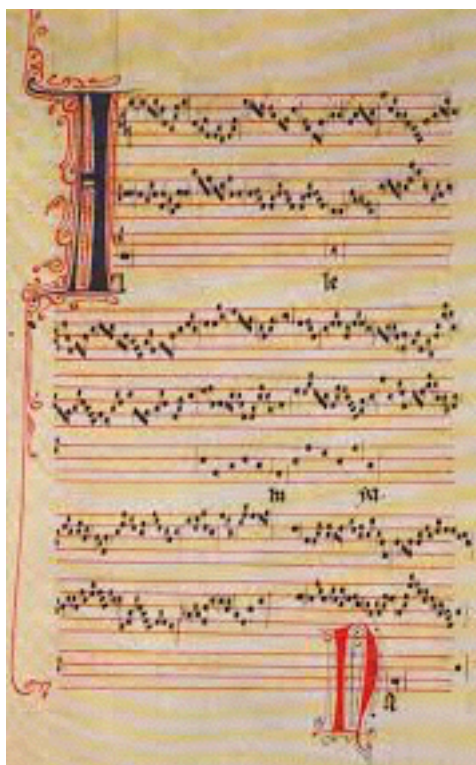 A l le
lu ya.
N a